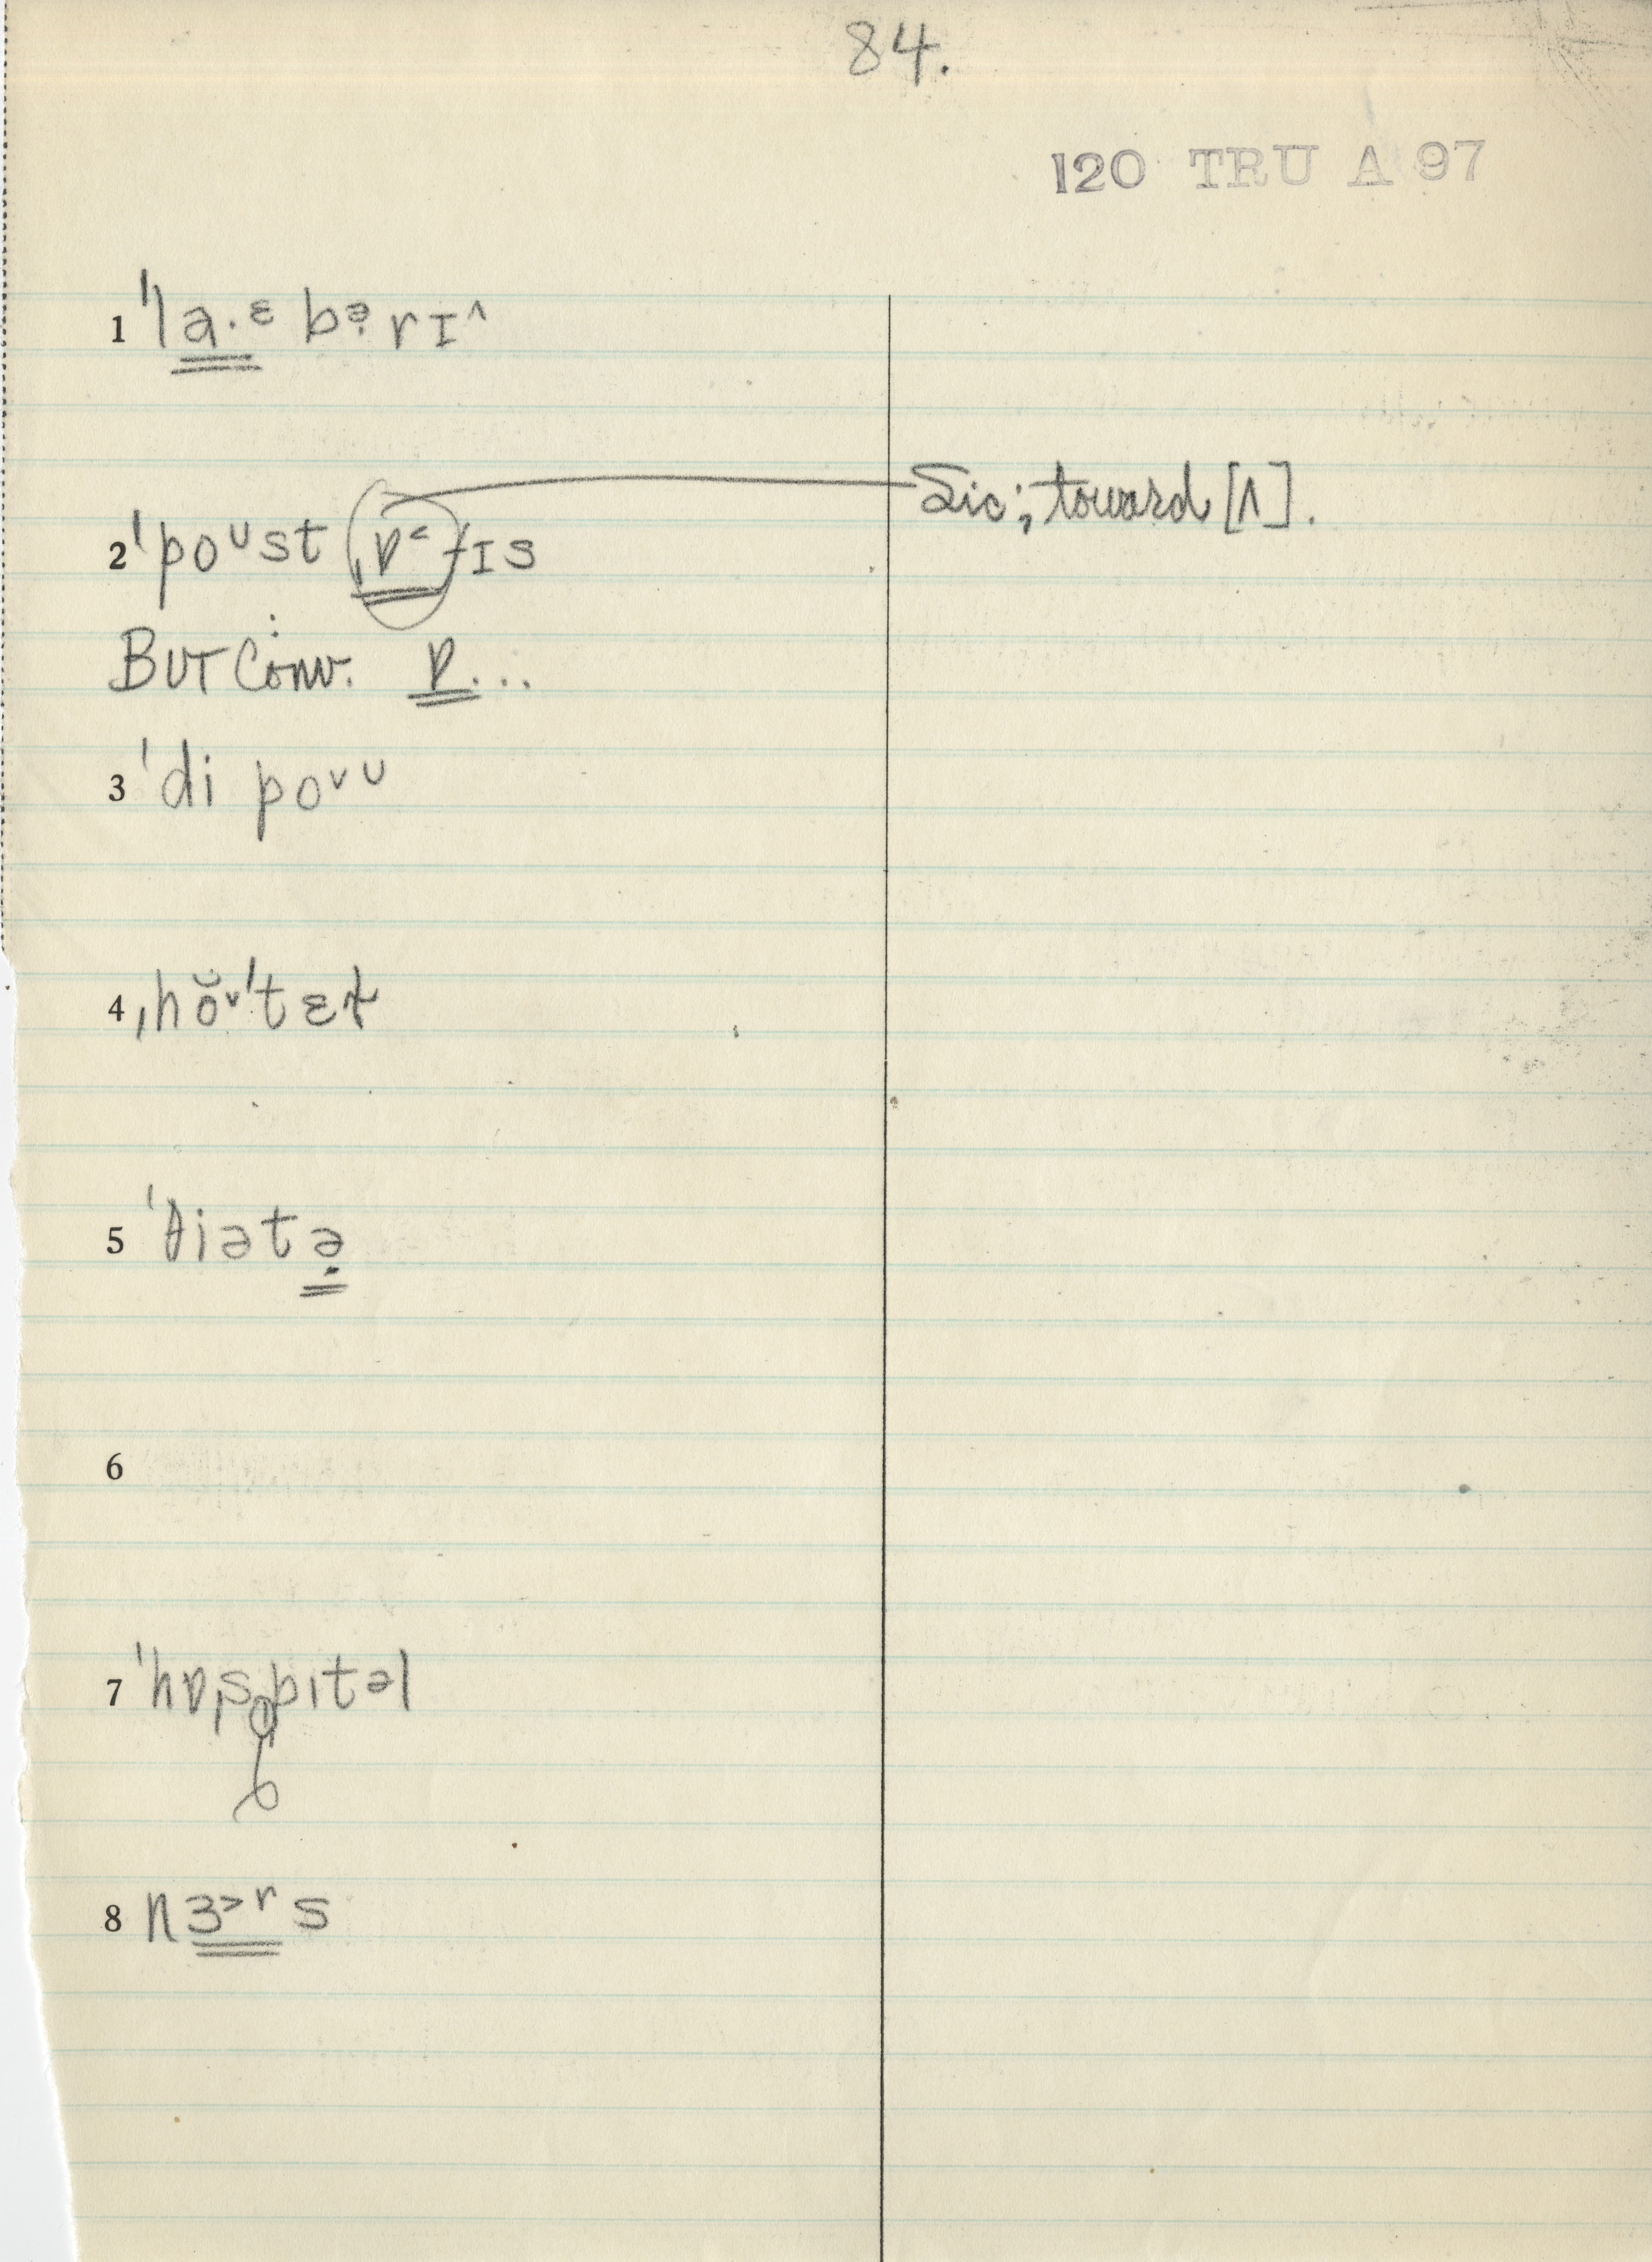 84.
120 TRU A 97
1 ˈla·ᵋbə̣rɪ˄
Sic; toward [ʌ].
2 ˈpoᵁst ˌɒ˂fɪs
BUT Conv: ɒ...
3 ˈdi po˅ᵁ
4 ˌhŏ˅ˈtɛɫ
5 ˈθiətə̣
6
7 ˈhɒˌspɪtəl
8 nɜ˃ʳs